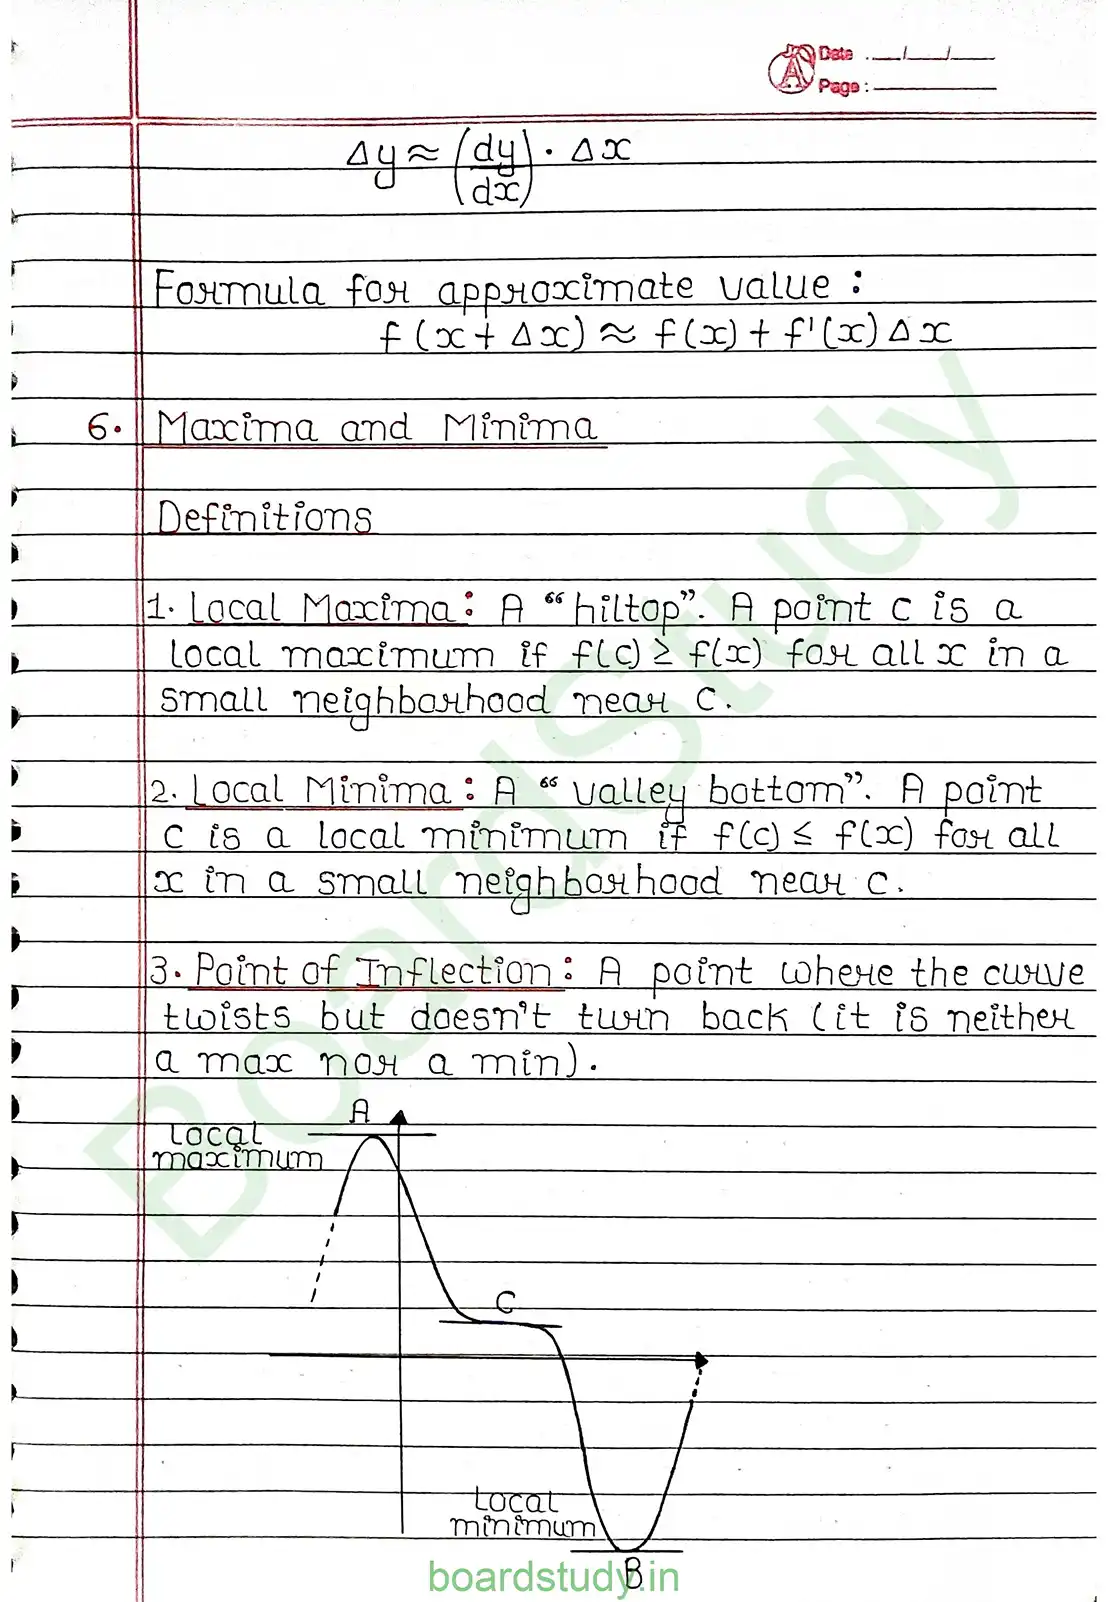 Date : __/__/__
Page : ______
Δy ≈ (dy/dx) · Δx
Formula for approximate value :
f(x + Δx) ≈ f(x) + f'(x) Δx
6. Maxima and Minima
Definitions
1. Local Maxima : A “hiltop”. A point c is a
local maximum if f(c) ≥ f(x) for all x in a
small neighborhood near c.
2. Local Minima : A “valley bottom”. A point
c is a local minimum if f(c) ≤ f(x) for all
x in a small neighborhood near c.
3. Point of Inflection : A point where the curve
twists but doesn't turn back (it is neither
a max nor a min).
A
Local
maximum
C
Local
minimum
B
BoardStudy
boardstudy.in